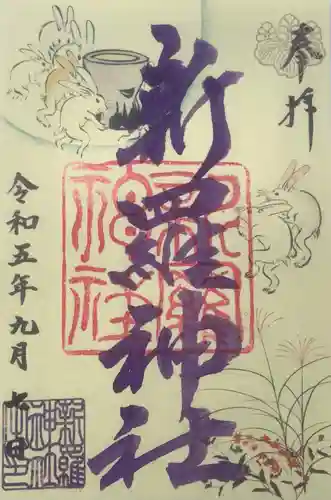 奉拝
新羅神社
令和五年九月七日
新羅神社